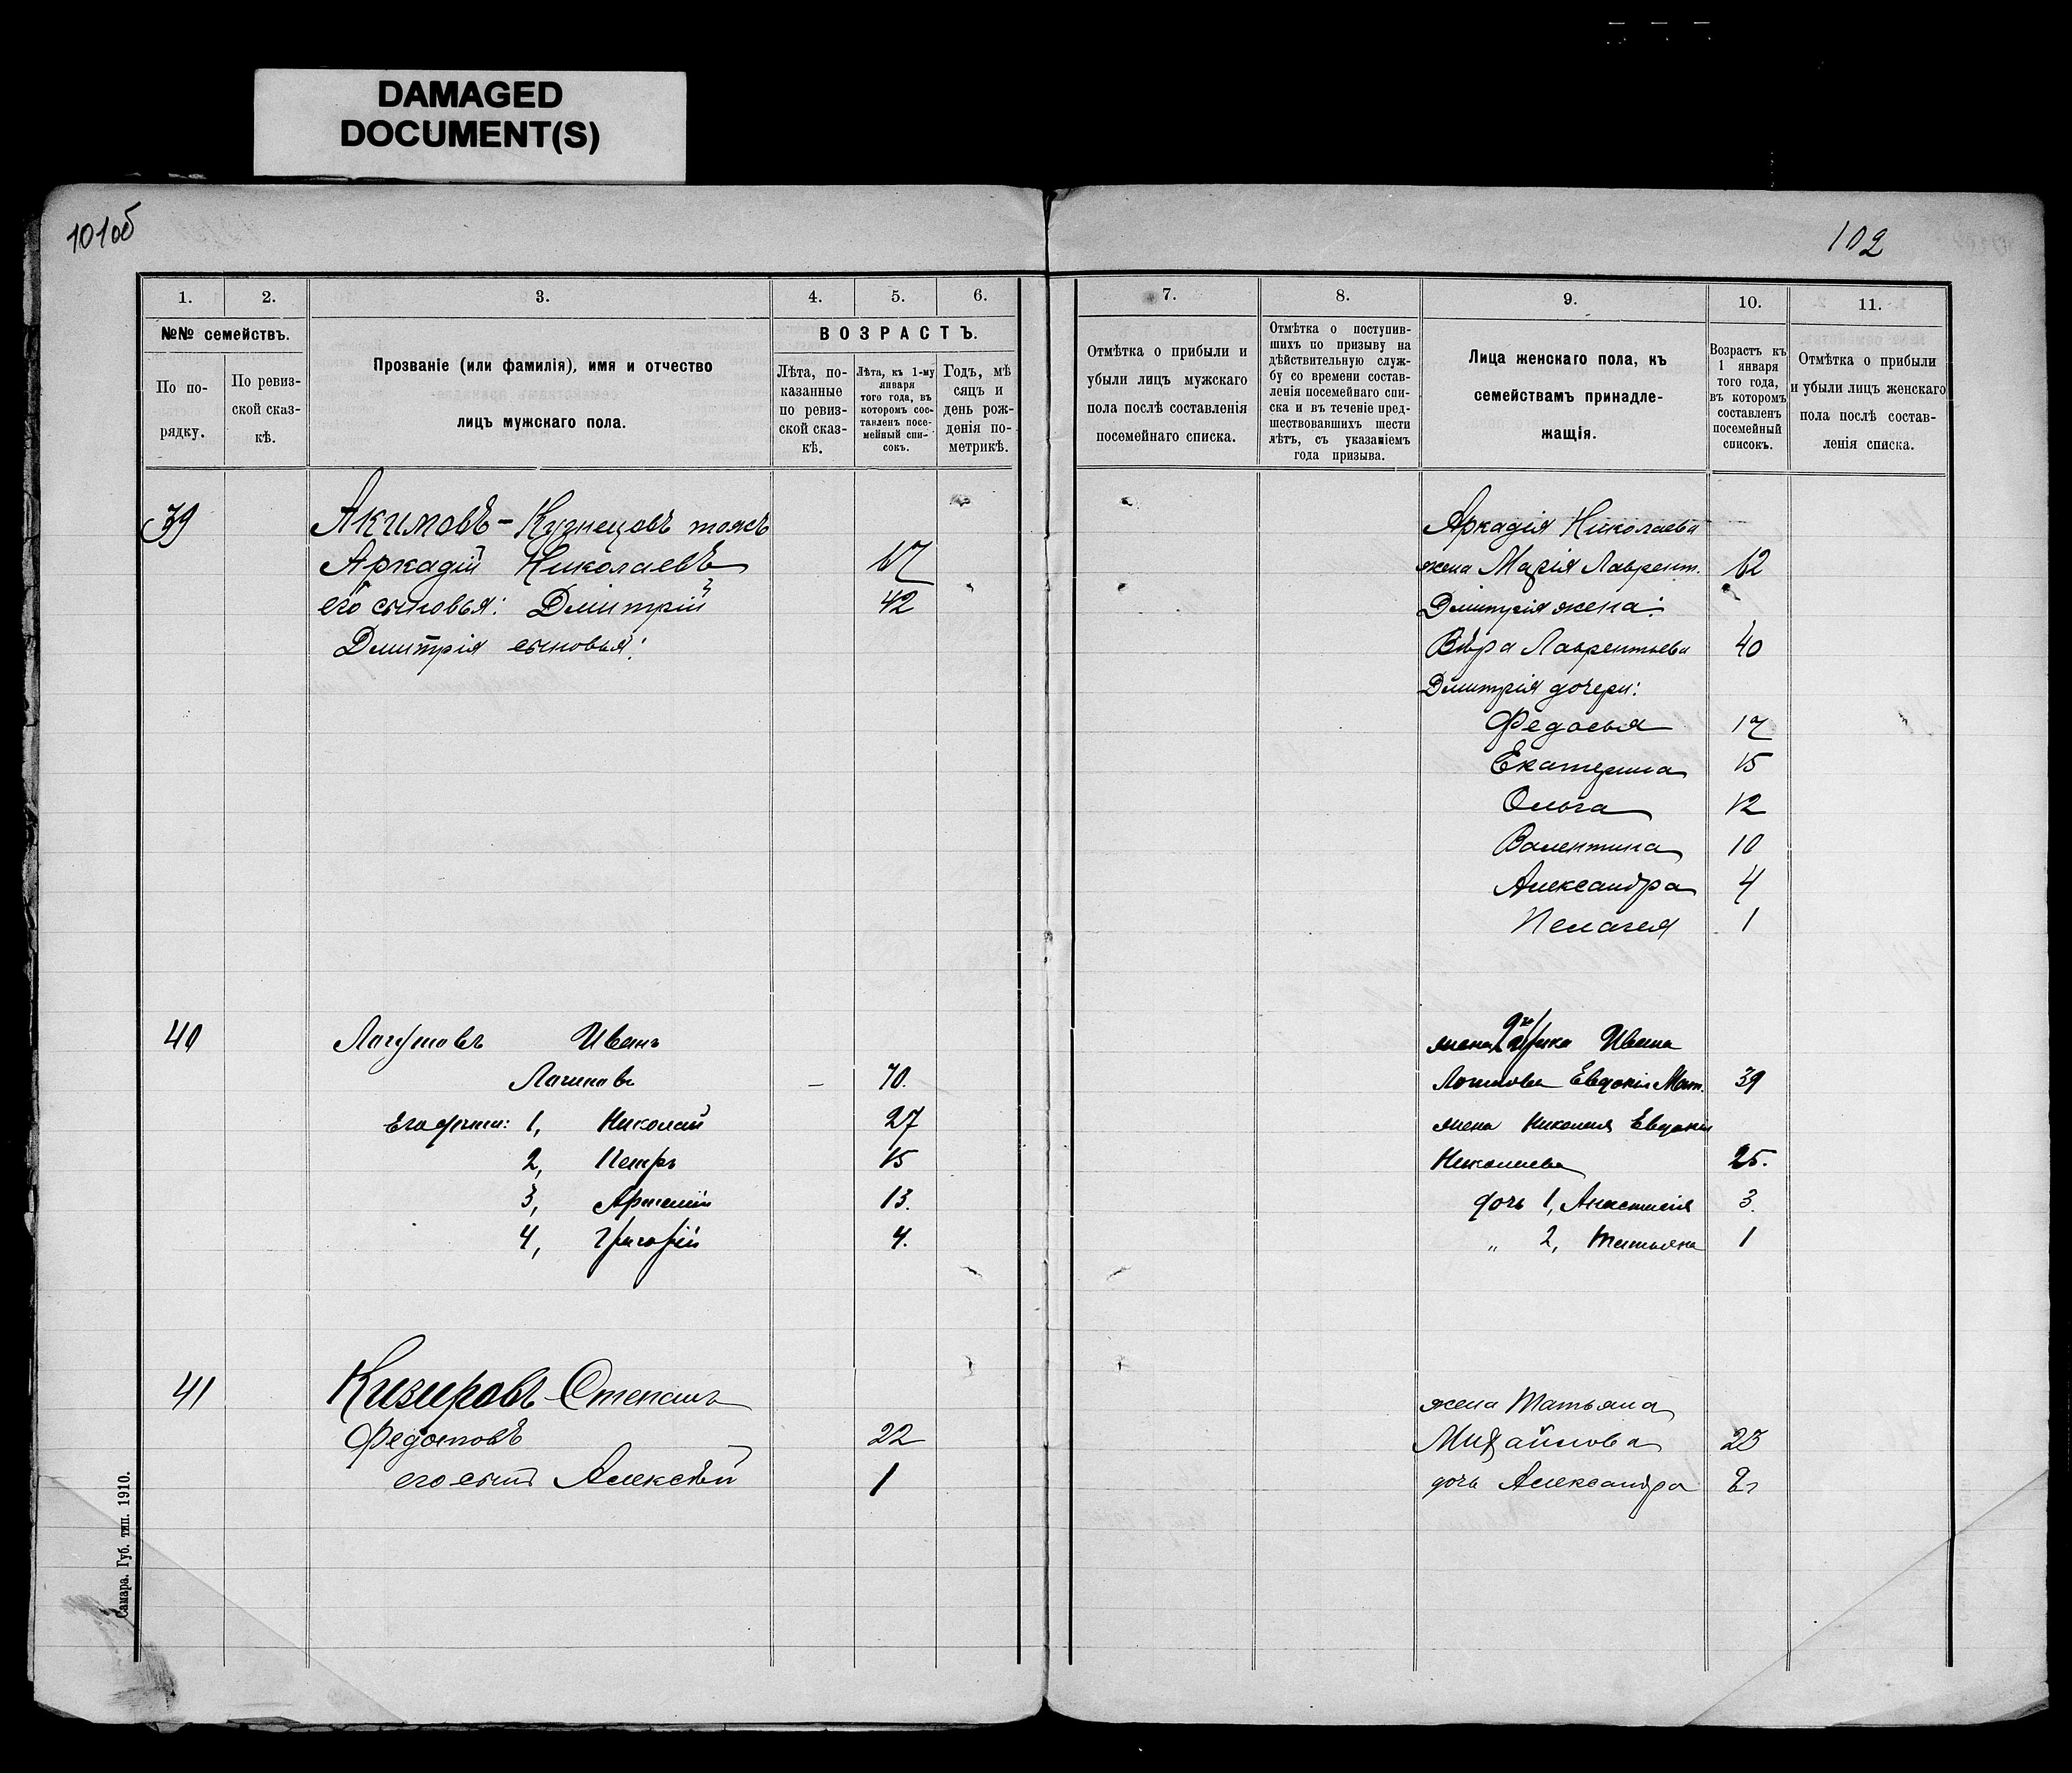 DAMAGED
DOCUMENT(S)
101об
102
1.
2.
3.
4.
5.
6.
7.
8.
9.
10.
11.
№№ семействъ.
По по-
рядку.
По ревиз-
ской сказ-
кѣ.
Прозваніе (или фамилія), имя и отчество
лицъ мужскаго пола.
ВОЗРАСТЪ.
Лѣта, по-
казанные
по ревиз-
ской сказ-
кѣ.
Лѣта, къ 1-му
января
того года, въ
которомъ сос-
тавленъ посе-
мейный спи-
сокъ.
Годъ, мѣ
сяцъ и
день рож-
денія по-
метрикѣ.
Отмѣтка о прибыли и
убыли лицъ мужскаго
пола послѣ составленія
посемейнаго списка.
Отмѣтка о поступив-
шихъ по призыву на
дѣйствительную служ-
бу со времени состав-
ленія посемейнаго спи-
ска и въ теченіе пред-
шествовавшихъ шести
лѣтъ, съ указаніемъ
года призыва.
Лица женскаго пола, къ
семействамъ принадле-
жащія.
Возрастъ къ
1 января
того года,
въ которомъ
составленъ
посемейный
списокъ.
Отмѣтка о прибыли
и убыли лицъ женскаго
пола послѣ состав-
ленія списка.
39 Акимовъ - Кузнецовъ тожъ
Аркадій Николаевъ
его сыновья: Дмитрій 42
Дмитрія сыновья:
Аркадія Николаева
жена Марія Лаврент. 62
Дмитрія жена:
Вѣра Лаврентьева 40
Дмитрія дочери:
Федосья 17
Екатерина 15
Ольга 12
Валентина 10
Александра 4
Пелагея 1
40 Иванъ
Логиновъ - 70.
Его дѣти: 1, Николай 27
2, Петръ 15
3, 13.
4, Григорій 4.
жена Ивана
Логинова Евдокія Мат. 39
жена Николая Евдокія
Николаева 25.
дочь 1, Анастасія 3.
„ 2, Татьяна 1
41 Кизировъ Степанъ
Федотовъ 22
его сынъ Алексѣй 1
жена Татьяна
Михайлова 23
дочь Александра 2
Самара. Губ. тип. 1910.